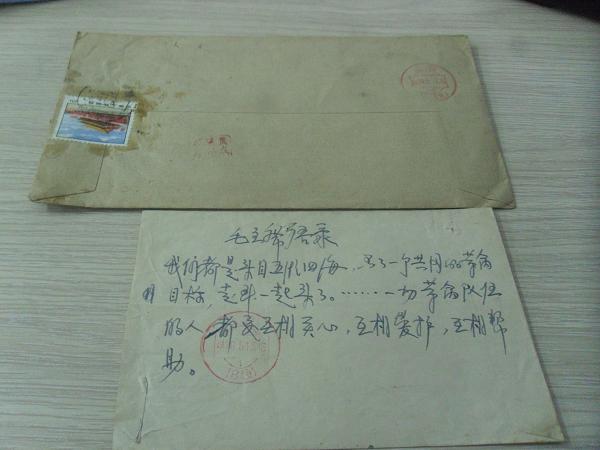 毛主席语录
我们都是来自五湖四海,为了一个共同的革命
目标,走到一起来了。……一切革命队伍
的人 都要互相关心,互相爱护,互相帮
助。